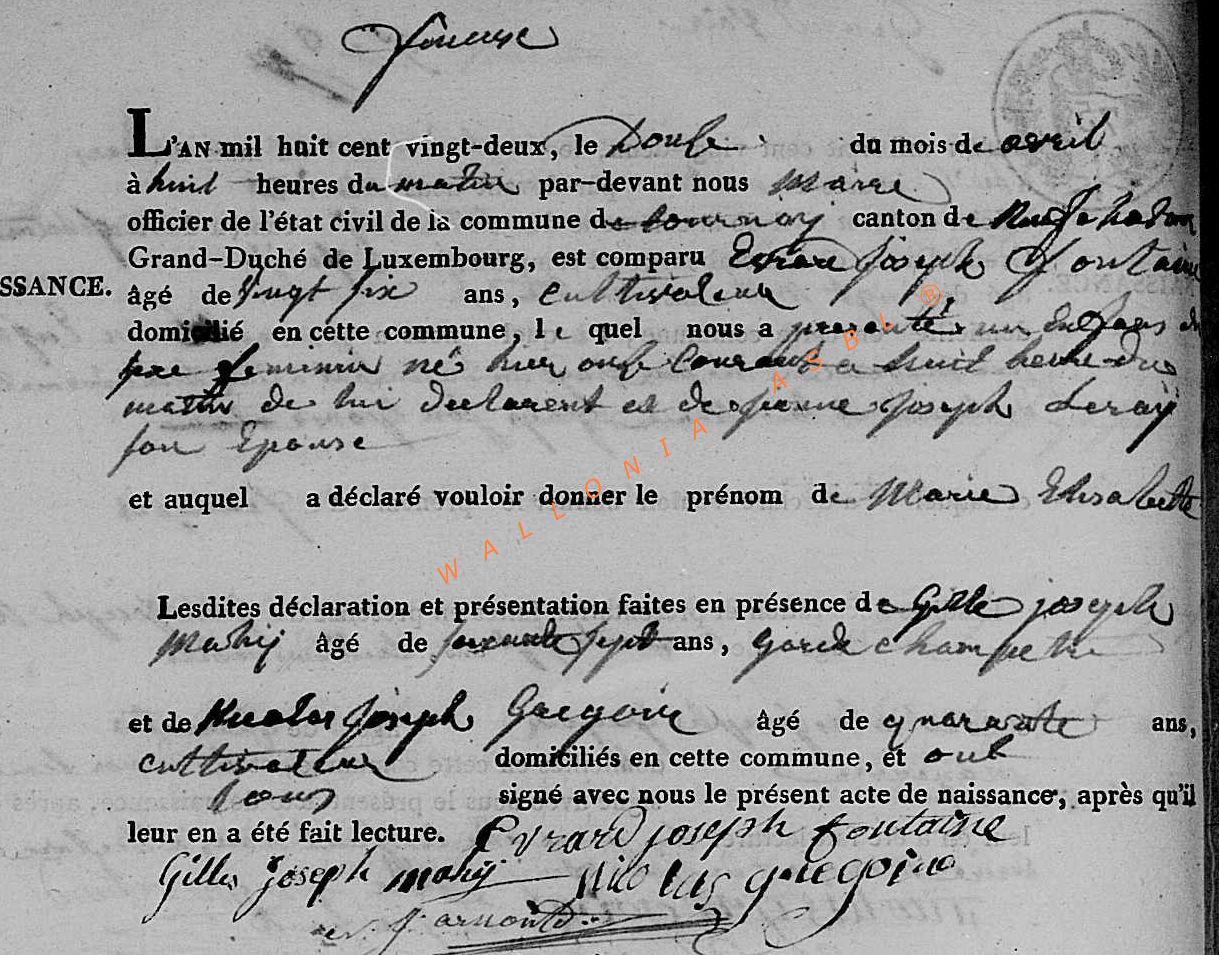 L'AN mil huit cent vingt-deux, le Douse du mois de avril
à huit heures du matin par-devant nous Maire
officier de l'état civil de la commune de tournay canton de
SSANCE.
Grand-Duché de Luxembourg, est comparu Evrard Joseph Fontaine
âgé de vingt six ans, cultivateur
domicilié en cette commune, le quel nous a presenté un Enfans du
sexe feminin né hier onse Courant a huit heure du
matin de lui declarent et de jeanne joseph Leroy
son Epouse
et auquel a déclaré vouloir donner le prénom de Marie Elisabette
Lesdites déclaration et présentation faites en présence de Gille joseph
Mahy âgé de soixante sept ans, garde champetre
et de Nicolas Joseph Gregoire âgé de quarante ans,
cultivateur domiciliés en cette commune, et ont
tous signé avec nous le présent acte de naissance, après qu'il
leur en a été fait lecture. Evrard joseph fontaine
Gilles joseph mahy Nicolas gregoire
j. arnould
WALLONIA ASBL ®